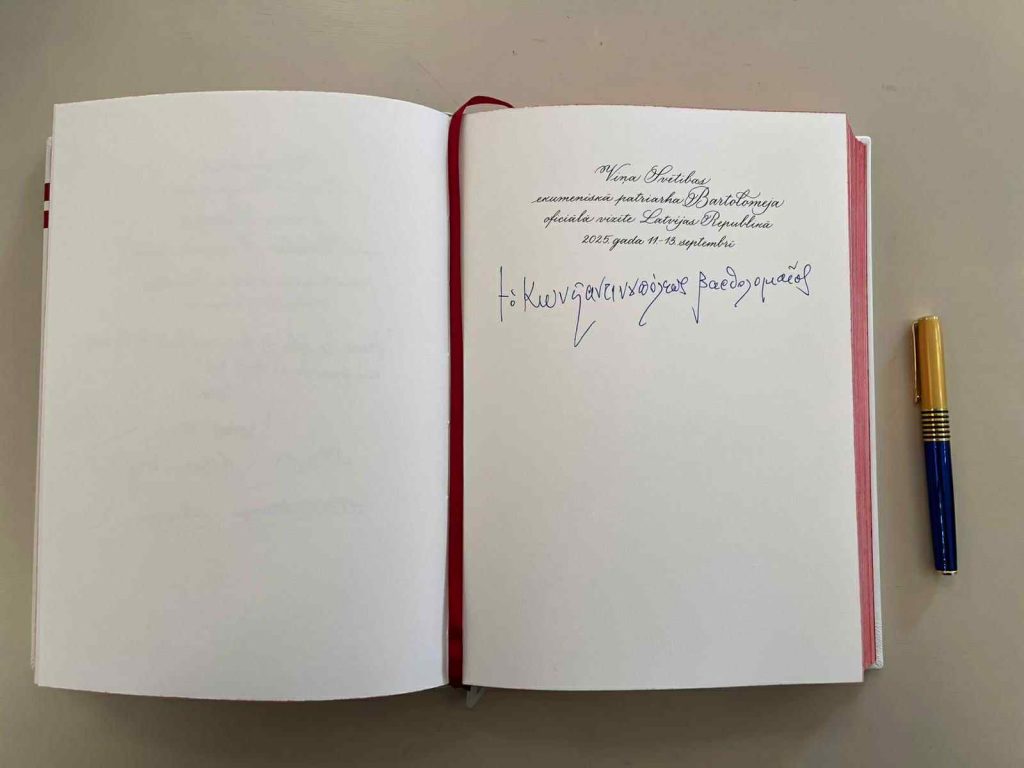 Viņa Svētības
ekumeniskā patriarha Bartolomeja
oficiāla vizīte Latvijas Republikā
2025. gada 11.-13. septembrī
† ὁ Κωνσταντινουπόλεως Βαρθολομαῖος